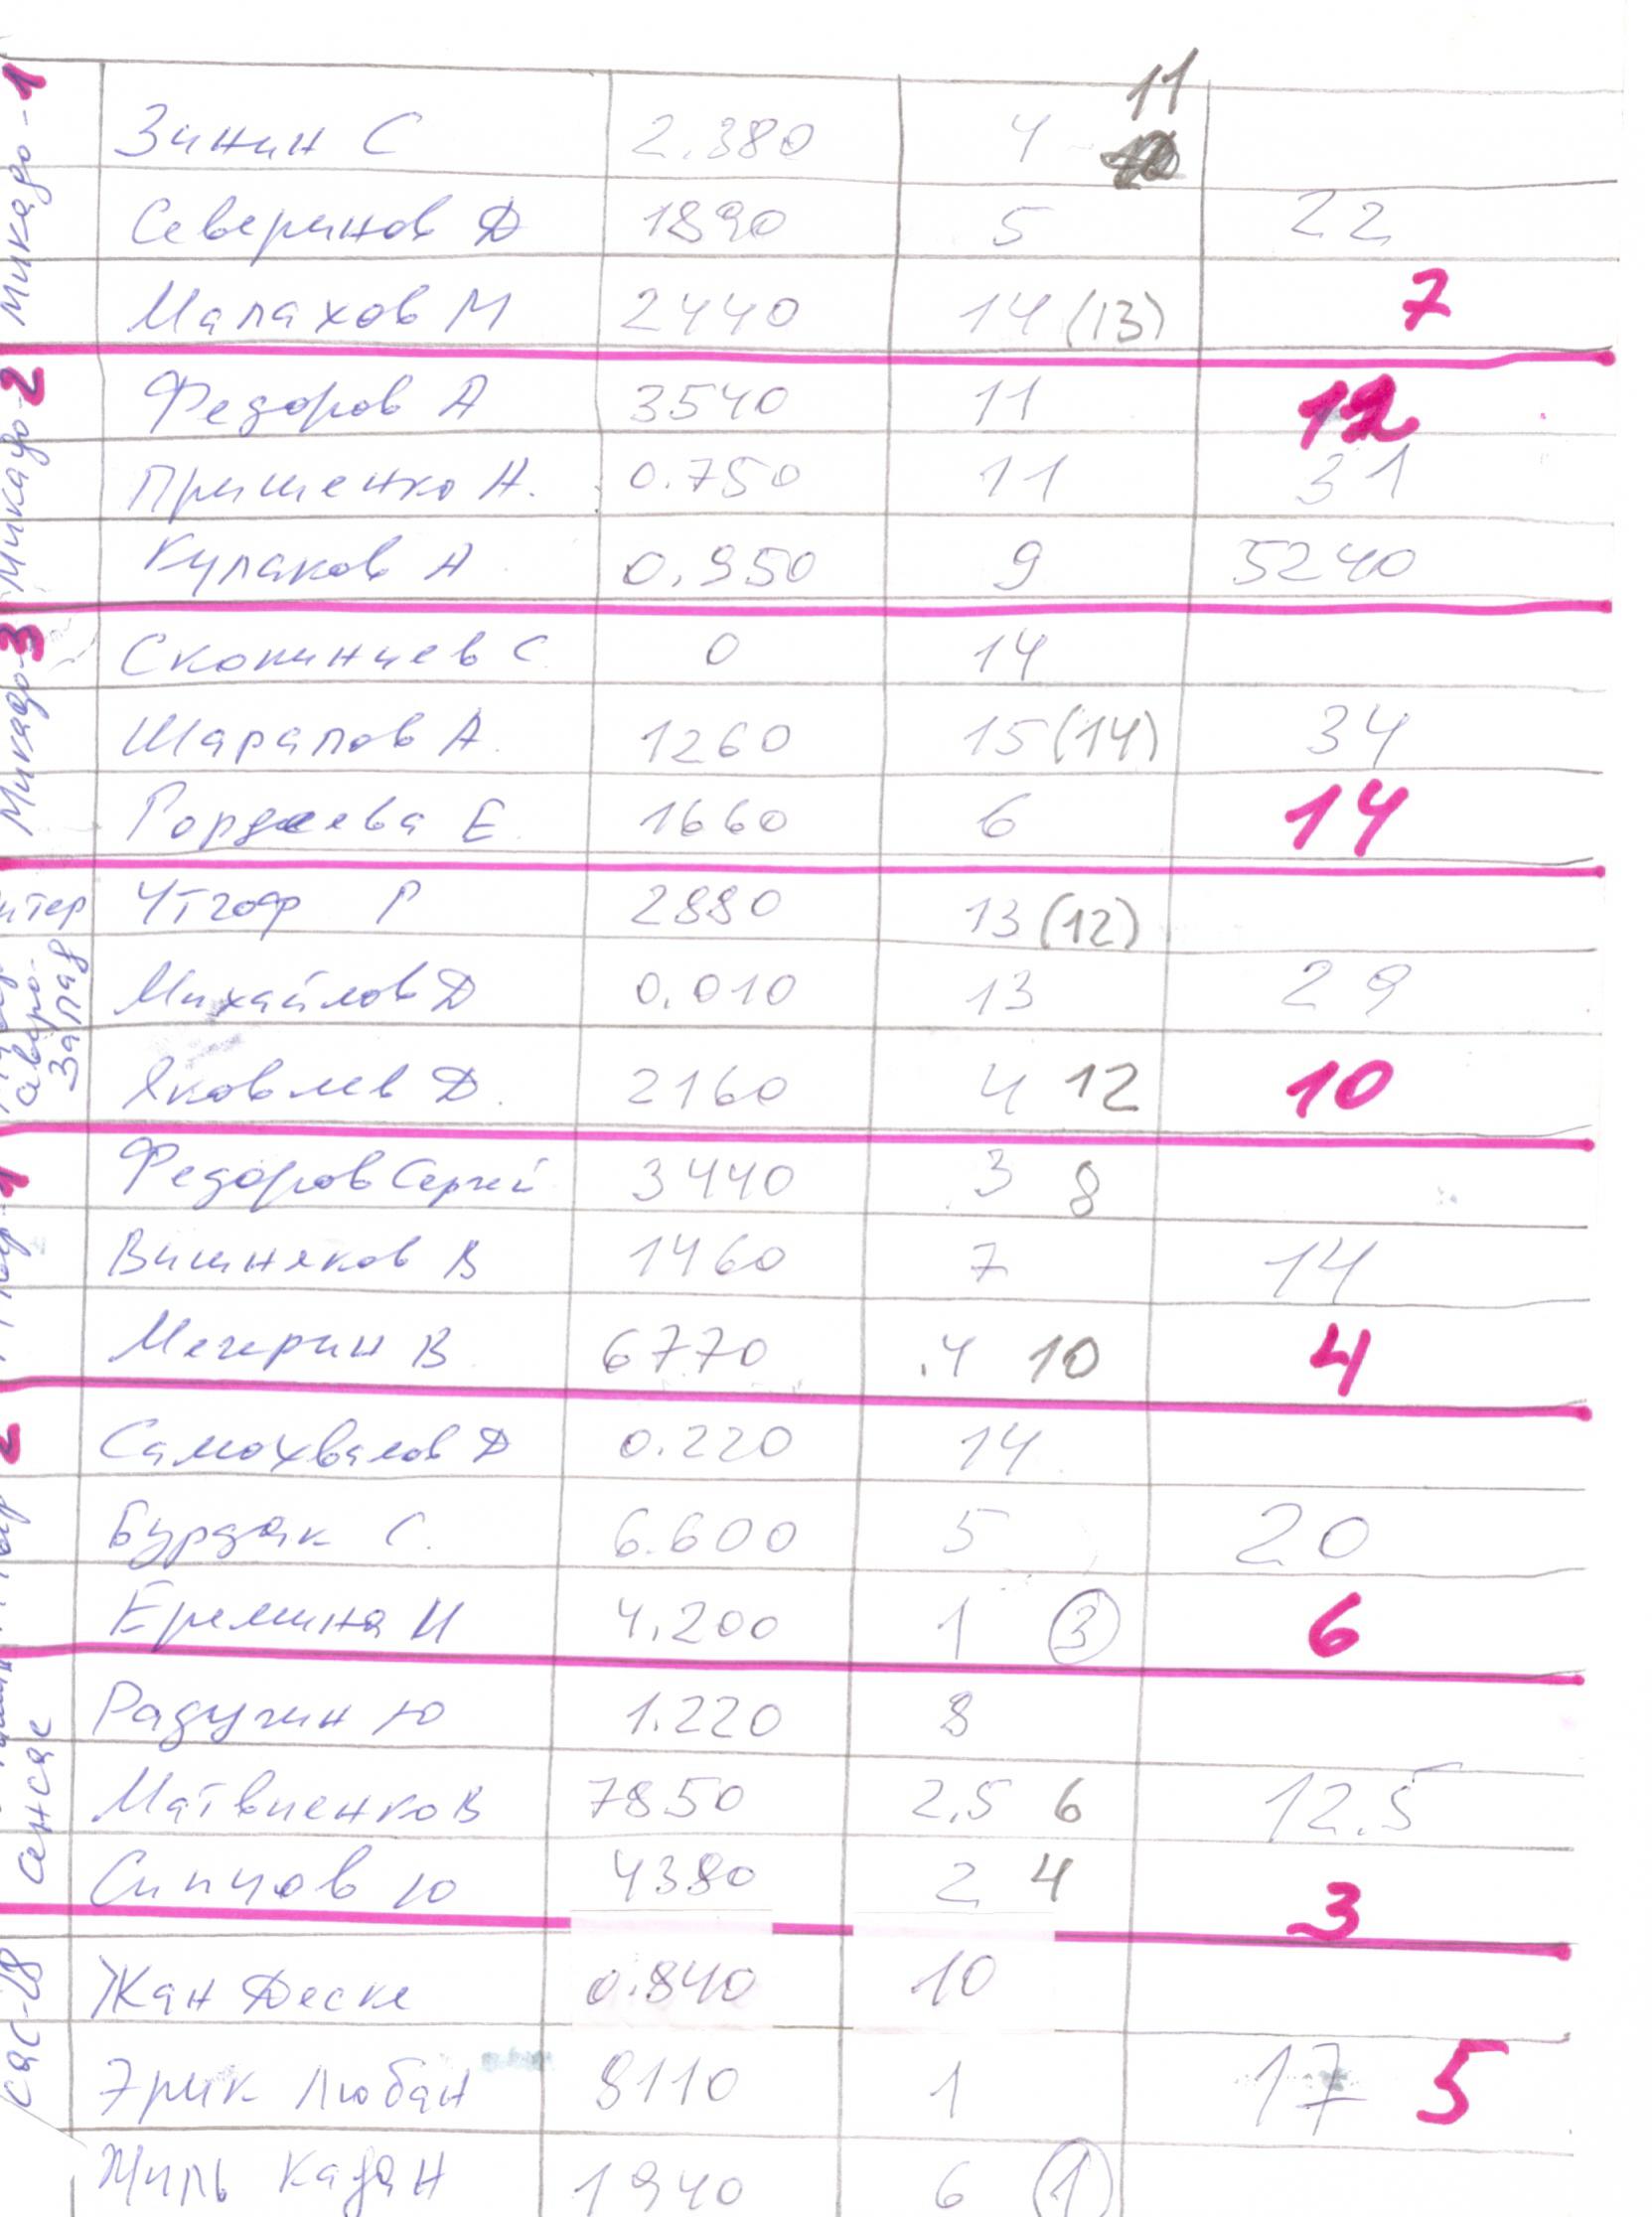 11
Микадо-1
Зинин С 2.380 4
Северинов Д 1890 5 22
Малахов М 2440 14 (13) 7
Микадо-2
Федоров А 3540 11 12
Пришенко А. 0.750 11 31
Кулаков А 0.950 9 5240
Микадо-3
Скопинцев С 0 14
Шарапов А. 1260 15 (14) 34
Гордеева Е. 1660 6 14
Запад
Р 2880 13 (12)
Михайлов Д 0.010 13 29
Яковлев Д. 2160 4 12 10
1
Федоров Сергей 3440 3 8
Вишняков В 1460 7 14
Мегерин В 6770 .4 10 4
2
Самохвалов Д 0.220 14
Бурдак С. 6.600 5 20
Еремина И 4.200 1 3 6
сенсас
Радугин Ю 1.220 8
Матвиенко В 7850 2,5 6 12.5
Сипцов Ю 4380 2 4 3
Жан Деске 0.840 10
Эрик Любан 8110 1 17 5
Жиль Кадан 1940 6 1